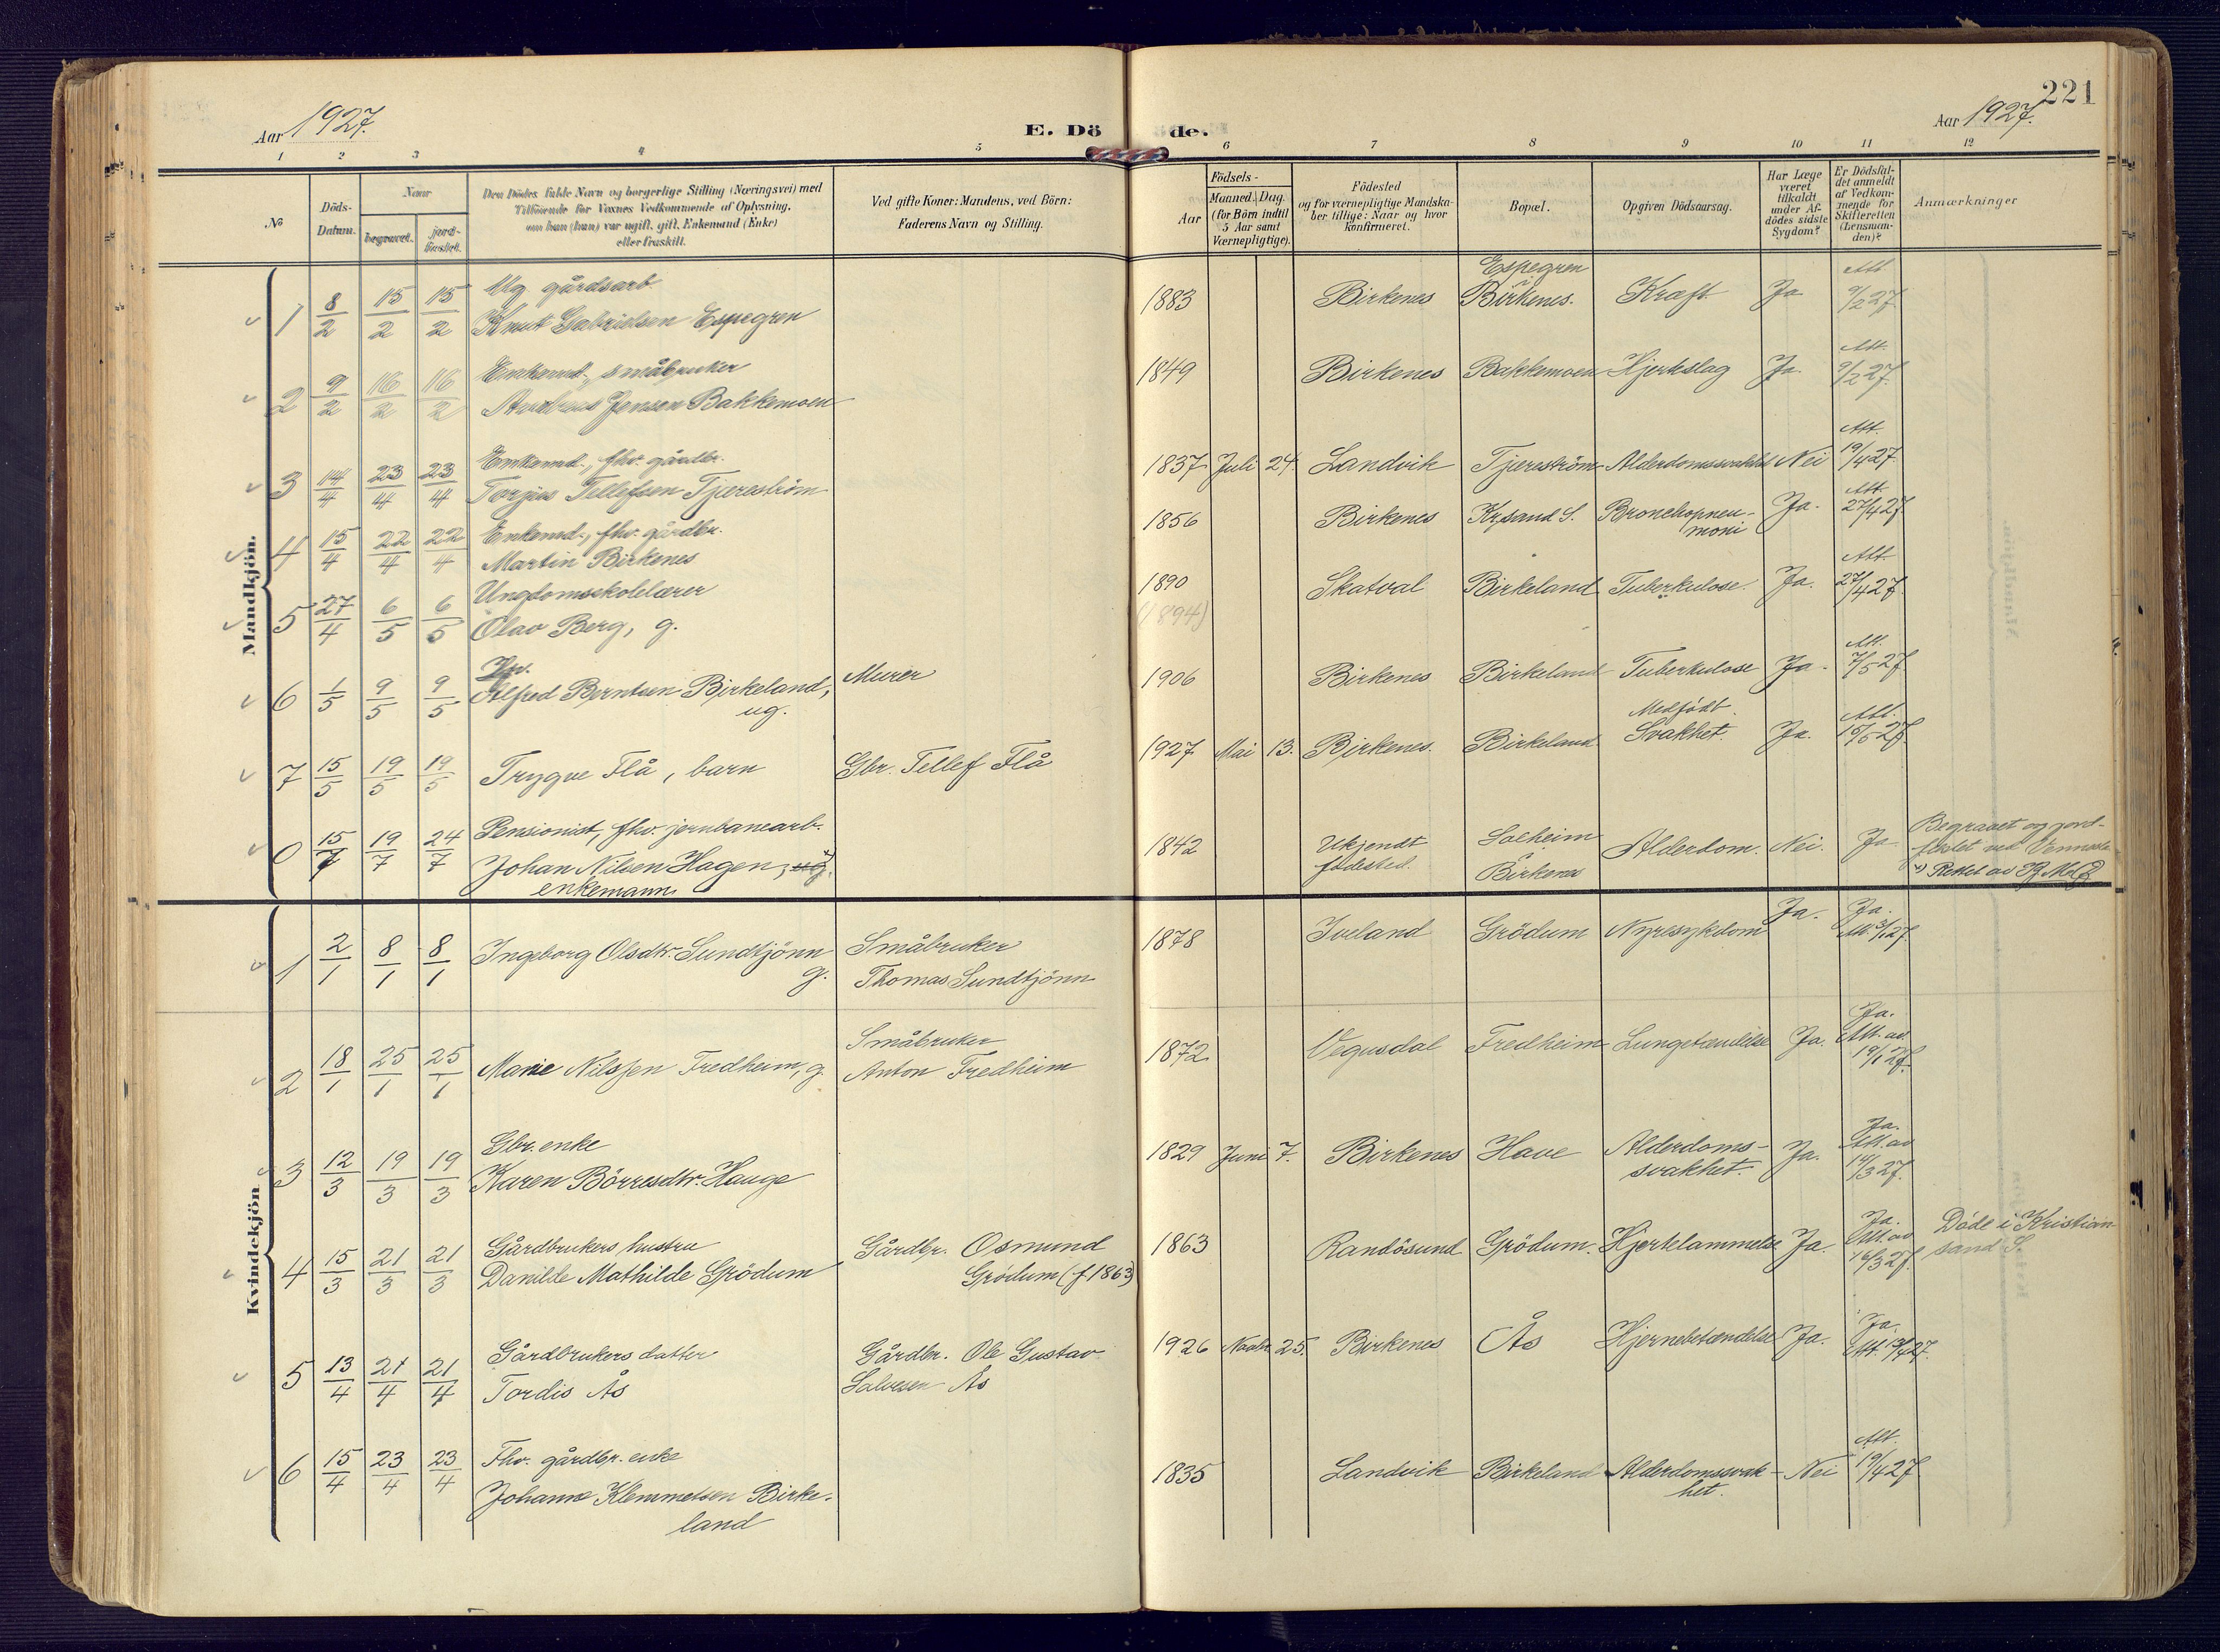 221
Aar 1927.
E. Dö de.
Aar 1927.
1 2 3 4 5 6 7 8 9 10 11 12
№
Döds-
Datum.
Naar
begravet.
jords-
fæstet.
Den Dödes fulde Navn og borgerlige Stilling (Næringsvei) med
Tilföiende for Voxnes Vedkommende af Oplysning,
om han (hun) var ugift, gift, Enkemand (Enke)
eller fraskilt.
Ved gifte Koner: Mandens, ved Börn:
Faderens Navn og Stilling.
Födsels-
Aar
Maaned. Dag.
(for Börn indtil
5 Aar samt
Værnepligtige).
Födested
og for værnepligtige Mandska-
ber tillige: Naar og hvor
konfirmeret.
Bopæl.
Opgiven Dödsaarsag.
Har Læge
været
tilkaldt
under Af-
dödes sidste
Sygdom?
Er Dödsfal-
det anmeldt
af Vedkom-
mende for
Skifteretten
(Lensman-
den)?
Anmærkninger
Mandkjön.
Ug gårdsarb. Espegren Att.
1 8/2 15/2 15/2 Knut Gabrielsen Espegren 1883 Birkenes Birkenes. Kræft Ja 9/2 27
Enkemd., småbruker Att.
2 9/2 16/2 16/2 Jensen Bakkemoen 1849 Birkenes Bakkemoen Hjerteslag Ja. 9/2 27.
Enkemd., fhv. gårdbr. Att.
3 14/4 23/4 23/4 Torjus Tellefsen Tjæreström 1837 Juli 24. Landvik Tjæreström Alderdomssvakhet Nei 19/4 27.
Enkemd., fhv. gårdbr. Att.
4 15/4 22/4 22/4 Martin Birkenes 1856 Birkenes Krsand S. Bronchopneu-
moni Ja. 27/4 27
Ungdomsskolelærer Att.
5 27/4 6/5 6/5 Olav Berg, g. 1890 (1894) Skatval Birkeland Tuberkulose. Ja. 27/4 27.
Att.
6 1/5 9/5 9/5 Alfred Berntsen Birkeland,
ug. Murer 1906 Birkenes Birkeland Tuberkulose Ja. 7/5 27.
Medfödt Att.
7 15/5 19/5 19/5 Trygve Flå, barn Gbr. Tellef Flå 1927 Mai 13. Birkenes. Birkeland. Svakhet. Ja. 15/5 27.
Pensionist, fhv. jernbanearb.
0 15/7 19/7 24/7 Johan Nilsen Hagen, ug.
enkemann 1842 Ukjendt
födested. Solheim
Birkenes Alderdom. Nei. Ja Begravet og jord-
fæstet ved Vennesla
Rettet av
Kvindekjön
1 2/1 8/1 8/1 Ingeborg Olsdtr. Sundtjönn
g. Småbruker
Thomas Sundtjönn 1878 Iveland Grödum Nyresykdom Ja. Ja.
Att. 3/1 27.
2 18/1 25/1 25/1 Marie Nilssen Fredheim, g. Småbruker
Anton Fredheim 1872 Vegusdal Fredheim Lungebetændelse Ja. Ja.
Att. av
19/1 27.
Gbr. enke
3 12/3 19/3 19/3 Karen Börresdtr. Hauge 1829 Juni 7. Birkenes Have Alderdoms-
svakhet. Ja. Ja.
Att. av
14/3 27.
Gårdbrukers hustru
4 15/3 21/3 21/3 Danilde Mathilde Grödum Gårdbr. Osmund
Grödum (f 1863) 1863 Randösund Grödum. Hjertelammelse Ja. Ja.
Att. av
16/3 27. Döde i Kristian-
sand S.
Gårdbrukers datter
5 13/4 21/4 21/4 Tordis Ås Gårdbr. Ole Gustav
Salvesen Ås 1926 Novbr. 25. Birkenes Ås Hjernebetændelse Ja. Ja.
Att. 19/4 27.
Fhv. gårdbr. enke
6 15/4 23/4 23/4 Johanne Klemmetsen Birke-
land 1835 Landvik Birkeland Alderdomssvak-
het. Nei Att.
19/4 27